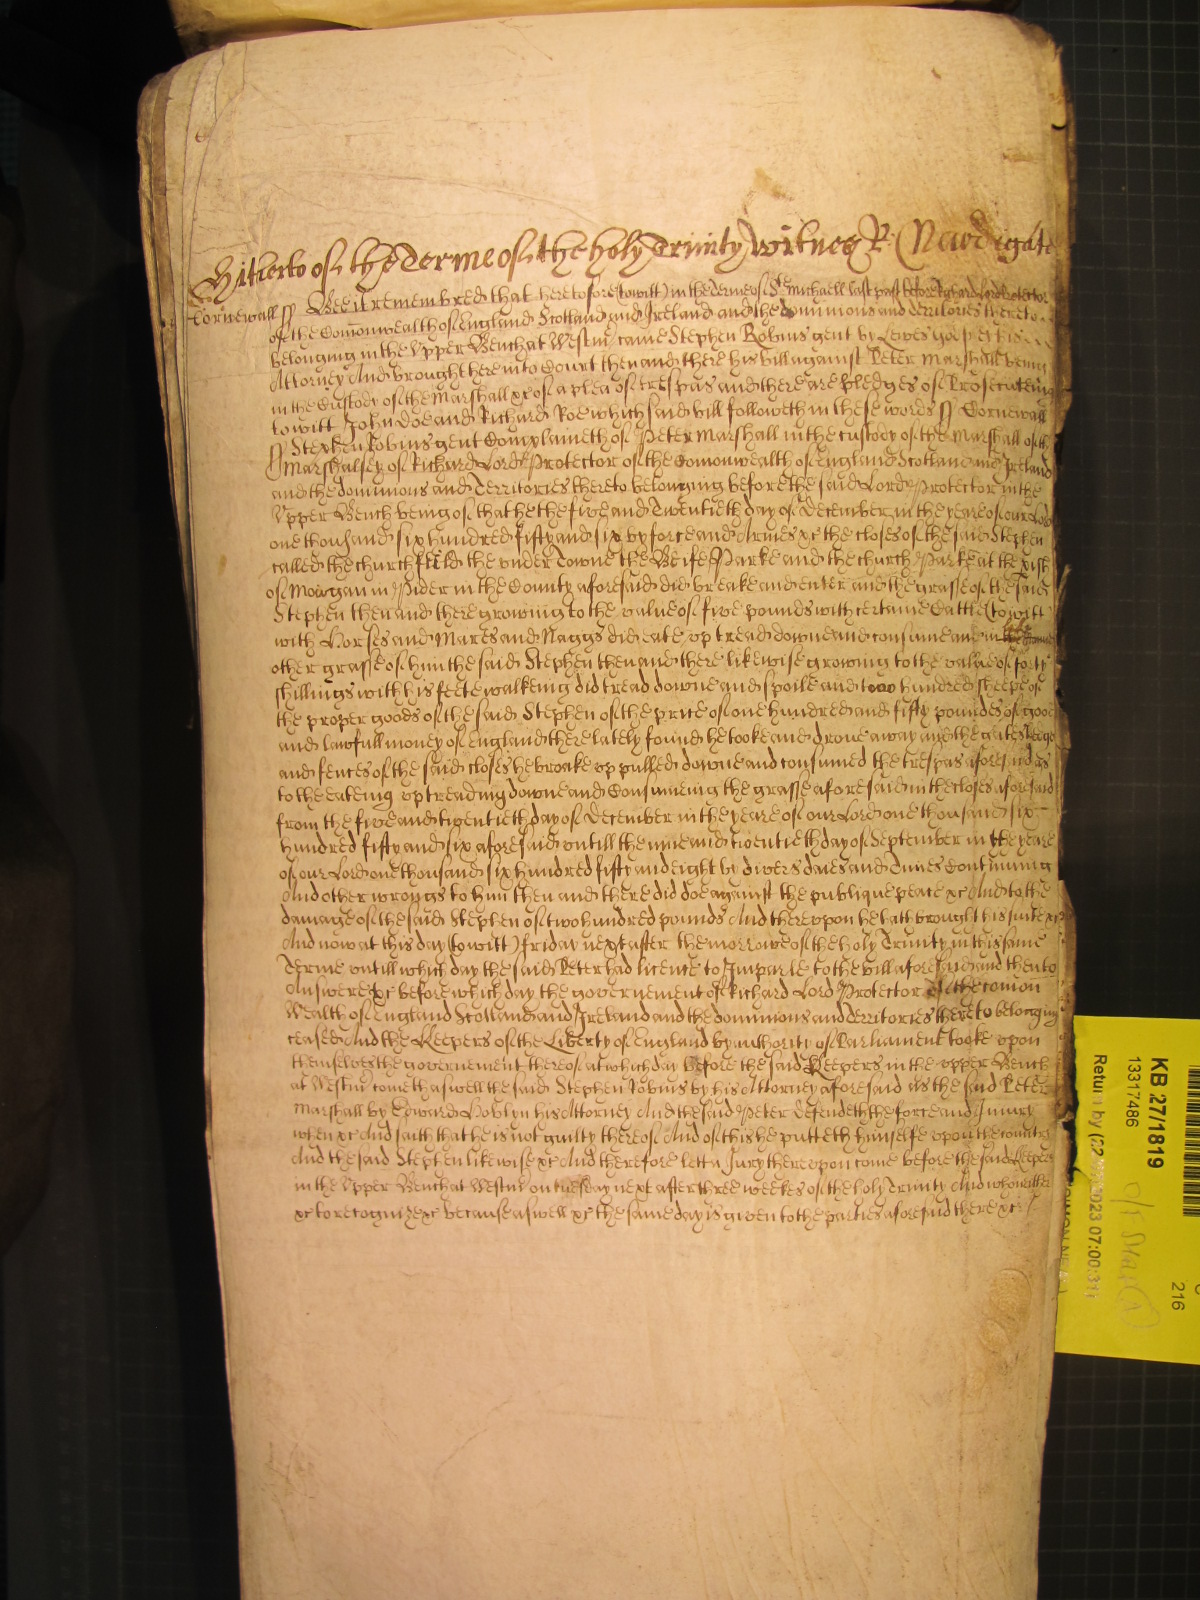 Hitherto of the Terme of the holy Trinity witnes R: Newdigate
Cornewall ss Bee it remembred that heretofore (towitt) in the terme of St Michaell last past before Richard Lord Protector
of the Comonwealth of England Scotland and Ireland and the dominions and territories thereto
belonging in the Upper Bench at Westmr came Stephen Robins gent by Lewes Harper his
Attorney And brought here into Court then and there his bill against Peter Marshall being
in the Custody of the Marshall &c of a plea of trespas and there are pledges of Prosecuteing
towitt John Doe and Richard Roe which said bill followeth in these words ss Cornewall
ss Stephen Robins gent Complaineth of Peter Marshall in the custody of the Marshall of the
Marshalsey of Richard Lord Protector of the Comonwealth of England Scotland and Ireland
and the dominions and Territories thereto belonging before the said Lord Protector in the
Upper Bench being of that he the five and Twentieth day of December in the yeare of our Lord
one thousand six hundred fifty and six by force and Armes &c the closes of the said Stephen
called the church feild the under Towne the Beife Parke and the church Parke at the pish
of Mowgan in Pider in the County aforesaid did breake and enter and the grasse of the said
Stephen then and there growing to the value of five pounds with certaine Cattle (towitt
with Horses and Mares and Naggs did eate up tread downe and consume and
other grasse of him the said Stephen then and there likewise growing to the value of forty
shillings with his feete walkeing did tread downe and spoile and two hundred sheepe of
the proper goods of the said Stephen of the price of one hundred and fifty poundes of good
and lawfull money of England there lately found he tooke and drove away and the gates hedges
and fences of the said closes he broake up pulled downe and consumed the trespas aforesaid as
to the eateing up treading downe and Consumeing the grasse aforesaid in the closes aforesaid
from the five and twentieth day of December in the yeare of our Lord one thousand six
hundred fifty and six aforesaid untill the nine and twentieth day of September in the yeare
of our Lord one thousand six hundred fifty and eight by divers daies and times Continuing
And other wrongs to him then and there did doe against the publique peace &c And to the
damage of the said Stephen of two hundred pounds And thereupon he hath brought his suite &c
And now at this day (towitt) friday next after the morrowe of the holy Trinity in this same
Terme untill which day the said Peter had licence to Imparle to the bill aforesaid and then to
Answere &c before which day the governement of Richard Lord Protector of the comon
Wealth of England Scotland and Ireland and the dominions and territories thereto belonging
ceased And the Keepers of the Liberty of England by authority of Parliament tooke upon
themselves the governement thereof at which day before the said Keepers in the upper Bench
at Westmr cometh aswell the said Stephen Robins by his Attorney aforesaid as the said Peter
Marshall by Edward Coblyn his Attorney And the said Peter defendeth the force and Injury
when &c And saith that he is not guilty thereof And of this he putteth himselfe upon the country
And the said Stephen likewise &c And therefore lett a Jury thereupon come before the said Keepers
in the Upper Bench at Westmr on tuesday next after three weekes of the holy Trinity And who neither
&c to recognize &c because aswell &c the same day is given to the parties aforesaid there &c
KB 27/1819
13317486
Return by (22
2023 07:00:31)
216